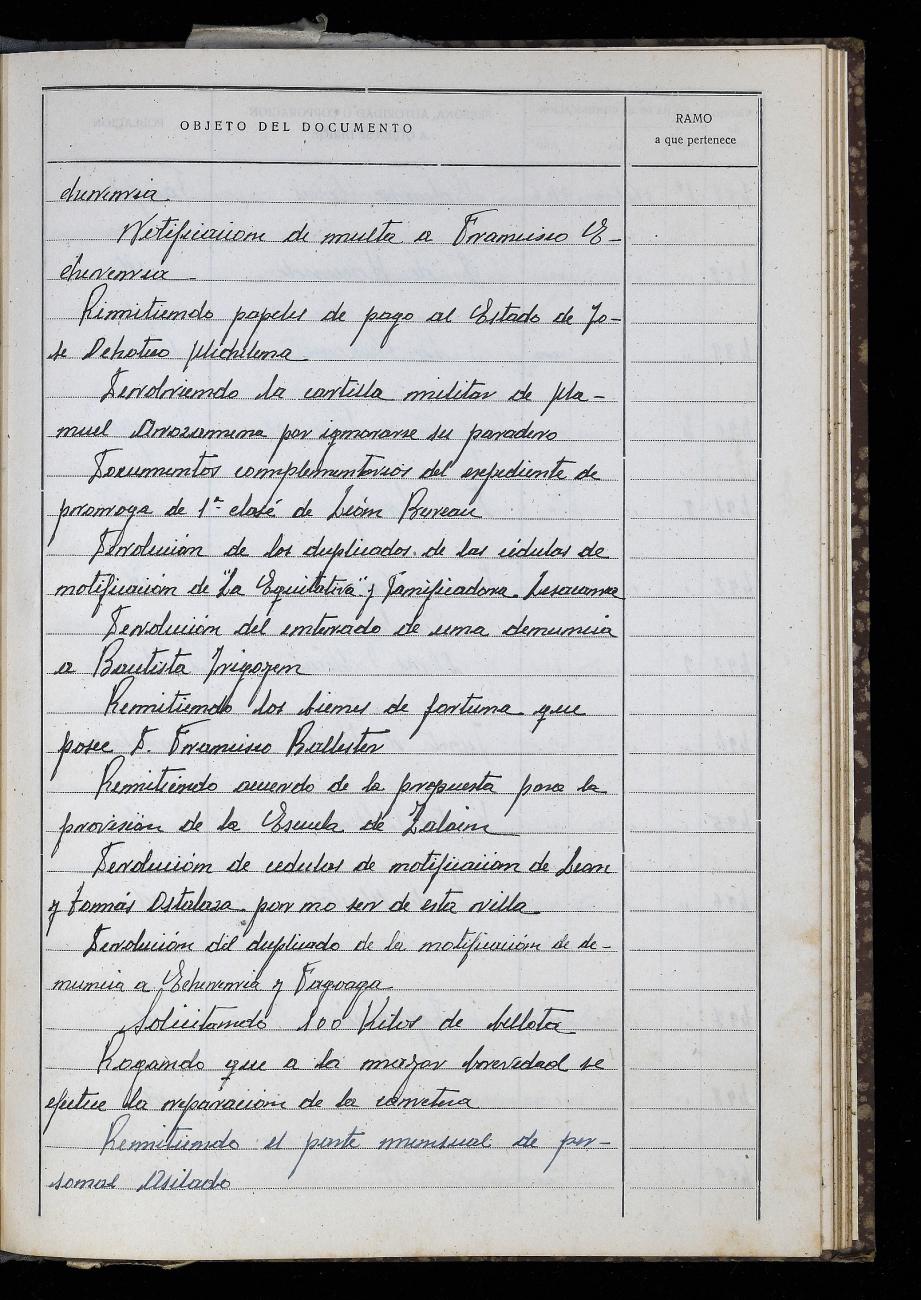 OBJETO DEL DOCUMENTO
RAMO
a que pertenece
cheverria.
Notificacion de multa a Francisco E-
cheverria
Remitiendo papeles de pago al Estado de Jo-
se Michelena
Devolviendo la cartilla militar de Ma-
nuel Arozamena por ignorarse su paradero
Documentos complementarios del expediente de
prorroga de 1ª clase de León Bureau
Devolución de los duplicados de las cédulas de
notificación de "La Equitativa" y Panificadora Lesacarra
Devolución del enterado de una denuncia
a Bautista Irigoyen
Remitiendo los bienes de fortuna que
posee D. Francisco Ballester
Remitiendo acuerdo de la propuesta para la
provision de la Escuela de Zalain
Devolución de cedulas de notificacion de Leon
y Tomás Ostalaza por no ser de esta villa
Devolución del duplicado de la notificación de de-
nuncia a Echeverria y Fagoaga
Solicitando 100 Kilos de bellota
Rogando que a la mayor brevedad se
efectue la reparacion de la carretera
Remitiendo el parte mensual de per-
sonal Asilado